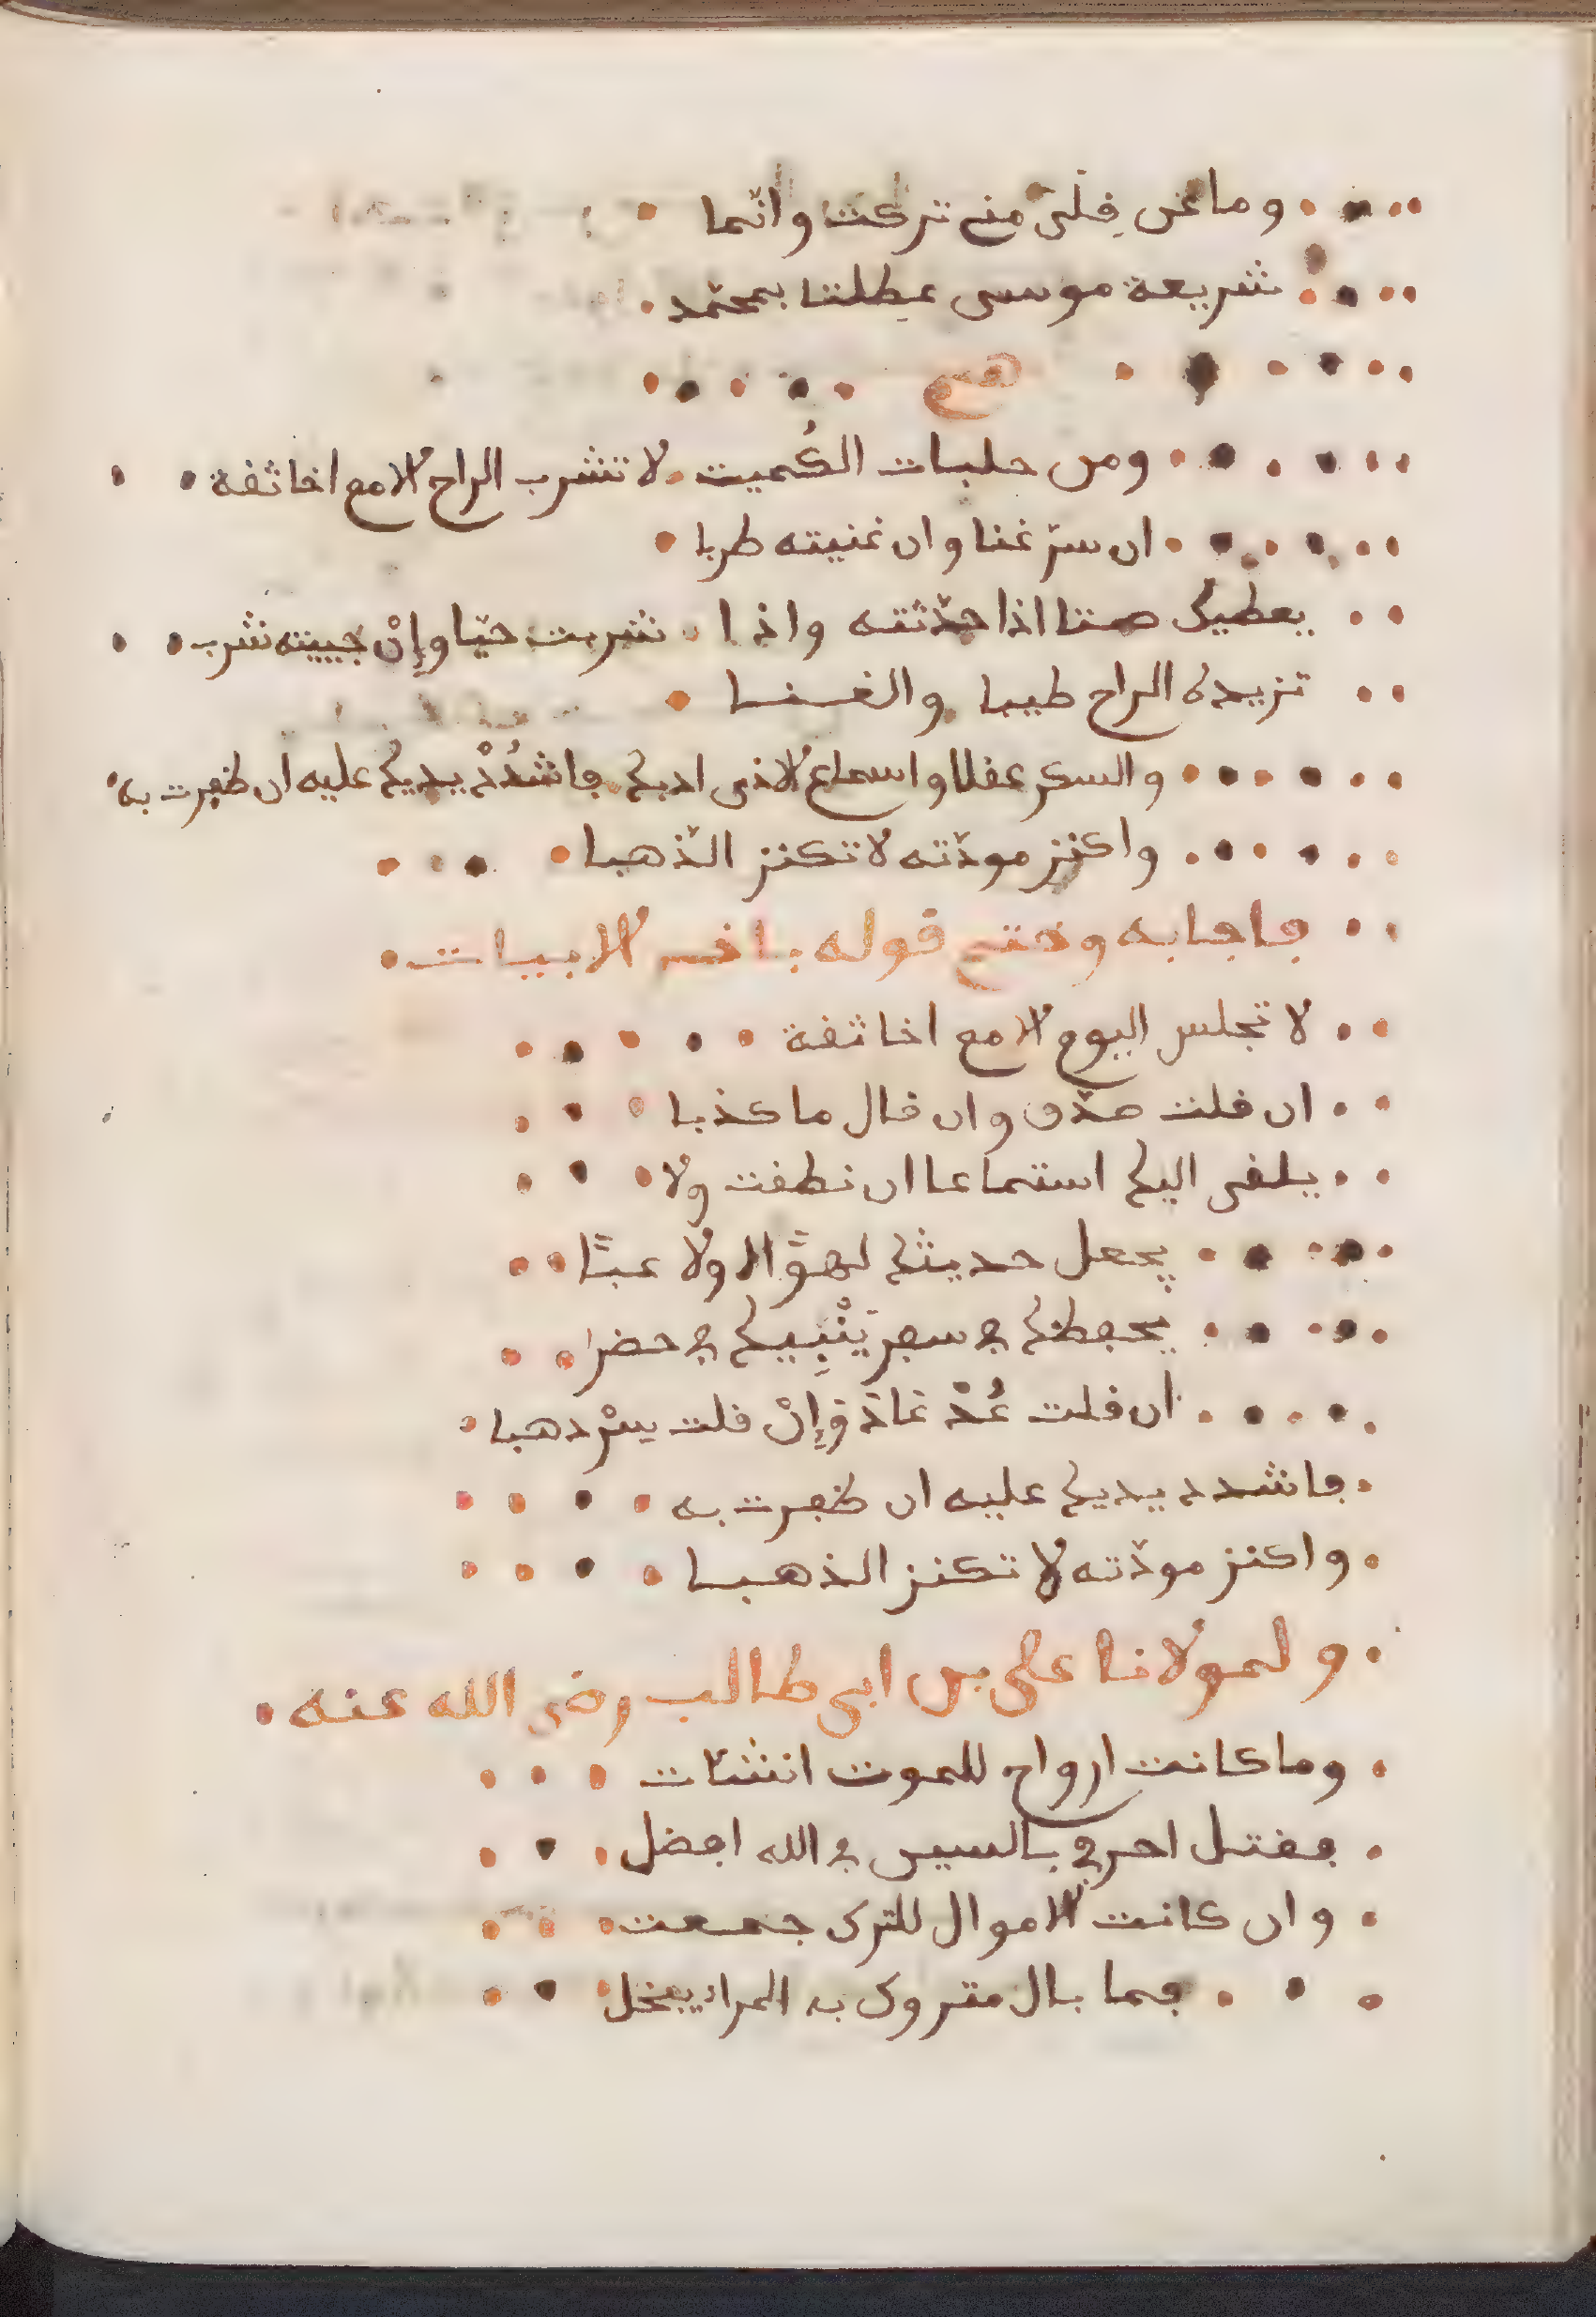 وما عن قلى منى تركت وانّما
شريعة موسى عطلت بمحمّد
هم
ومن حلبات الكُميت لا تشرب الراح الا مع اخا ثقة
ان سرّ غنا وان غنيته طربا
يعطيك صمتا اذا حدّثته واذا شربت حيّا وإنْ حييته شرب
تزيده الراح طيبا والغنا
والسكر عقلا واسماع الاذى ادبا فاشدُدْ يديك عليه ان ظفرت به
واكنز مودّته لا تكنز الذّهبا
فاجابه وختم قوله باخر الابيات
لا تجلس اليوم الا مع اخا ثقة
ان قلت صدّق وان قال ما كذبا
يلقى اليك استماعا ان نطقت ولا
يجعل حديثك لهوًا لا ولا عبثًا
يحفظك في سفر يُنْبِيك في حضر
ان قلت عُدْ عَادَ وإنْ قلت سِرْ ذهبا
فاشدد يديك عليه ان ظفرت به
واكنز مودّته لا تكنز الذهبا
ولمولانا علي بن ابي طالب رضي الله عنه
وما كانت ارواح للموت انشئت
فقتل امرئ بالسيف في الله افضل
وان كانت الاموال للترك جمعت
فما بال متروك به المراء يبخل